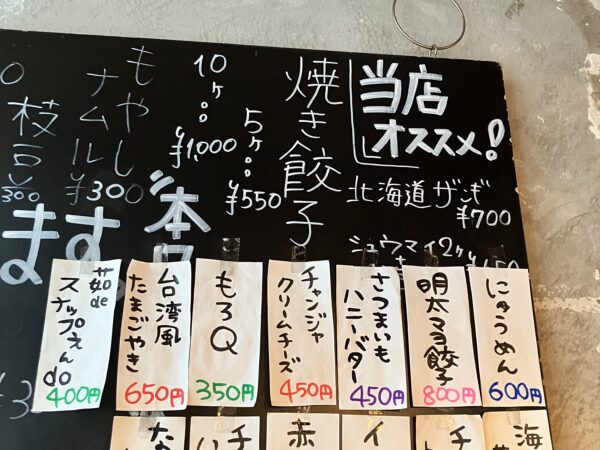 当店
オススメ!
北海道ザンギ
¥700
シュウマイ2ヶ
焼き餃子
5ヶ
¥550
10ヶ
¥1,000
もやし
ナムル
¥300
枝豆
¥300
ます。
本日
にゅうめん
600円
明太マヨ餃子
800円
さつまいも
ハニーバター
450円
チャンジャ
クリームチーズ
450円
もろQ
350円
台湾風
たまごやき
650円
茹de
スナップえんdo
400円
海
チ
イ
赤
チ
な